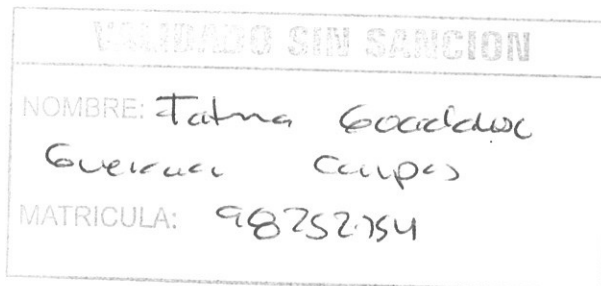 VALIDADO SIN SANCION
NOMBRE: Fatima Guadalupe
Guevara Campos
MATRICULA: 98252754